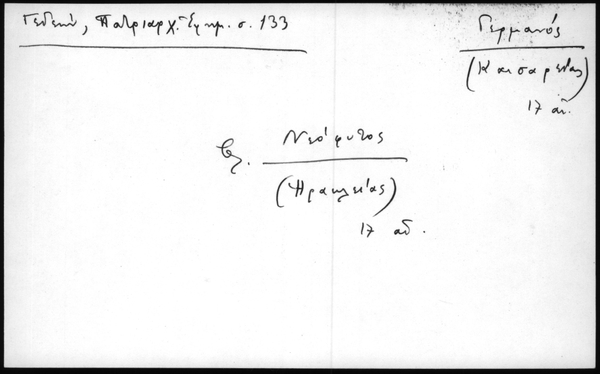 Γεδεών, Πατριαρχ. Ἐφημ. σ. 133
Γερμανός
(Καισαρείας)
17 αἰ.
βλ. Νεόφυτος
(Ἡρακλείας)
17 αἰ.